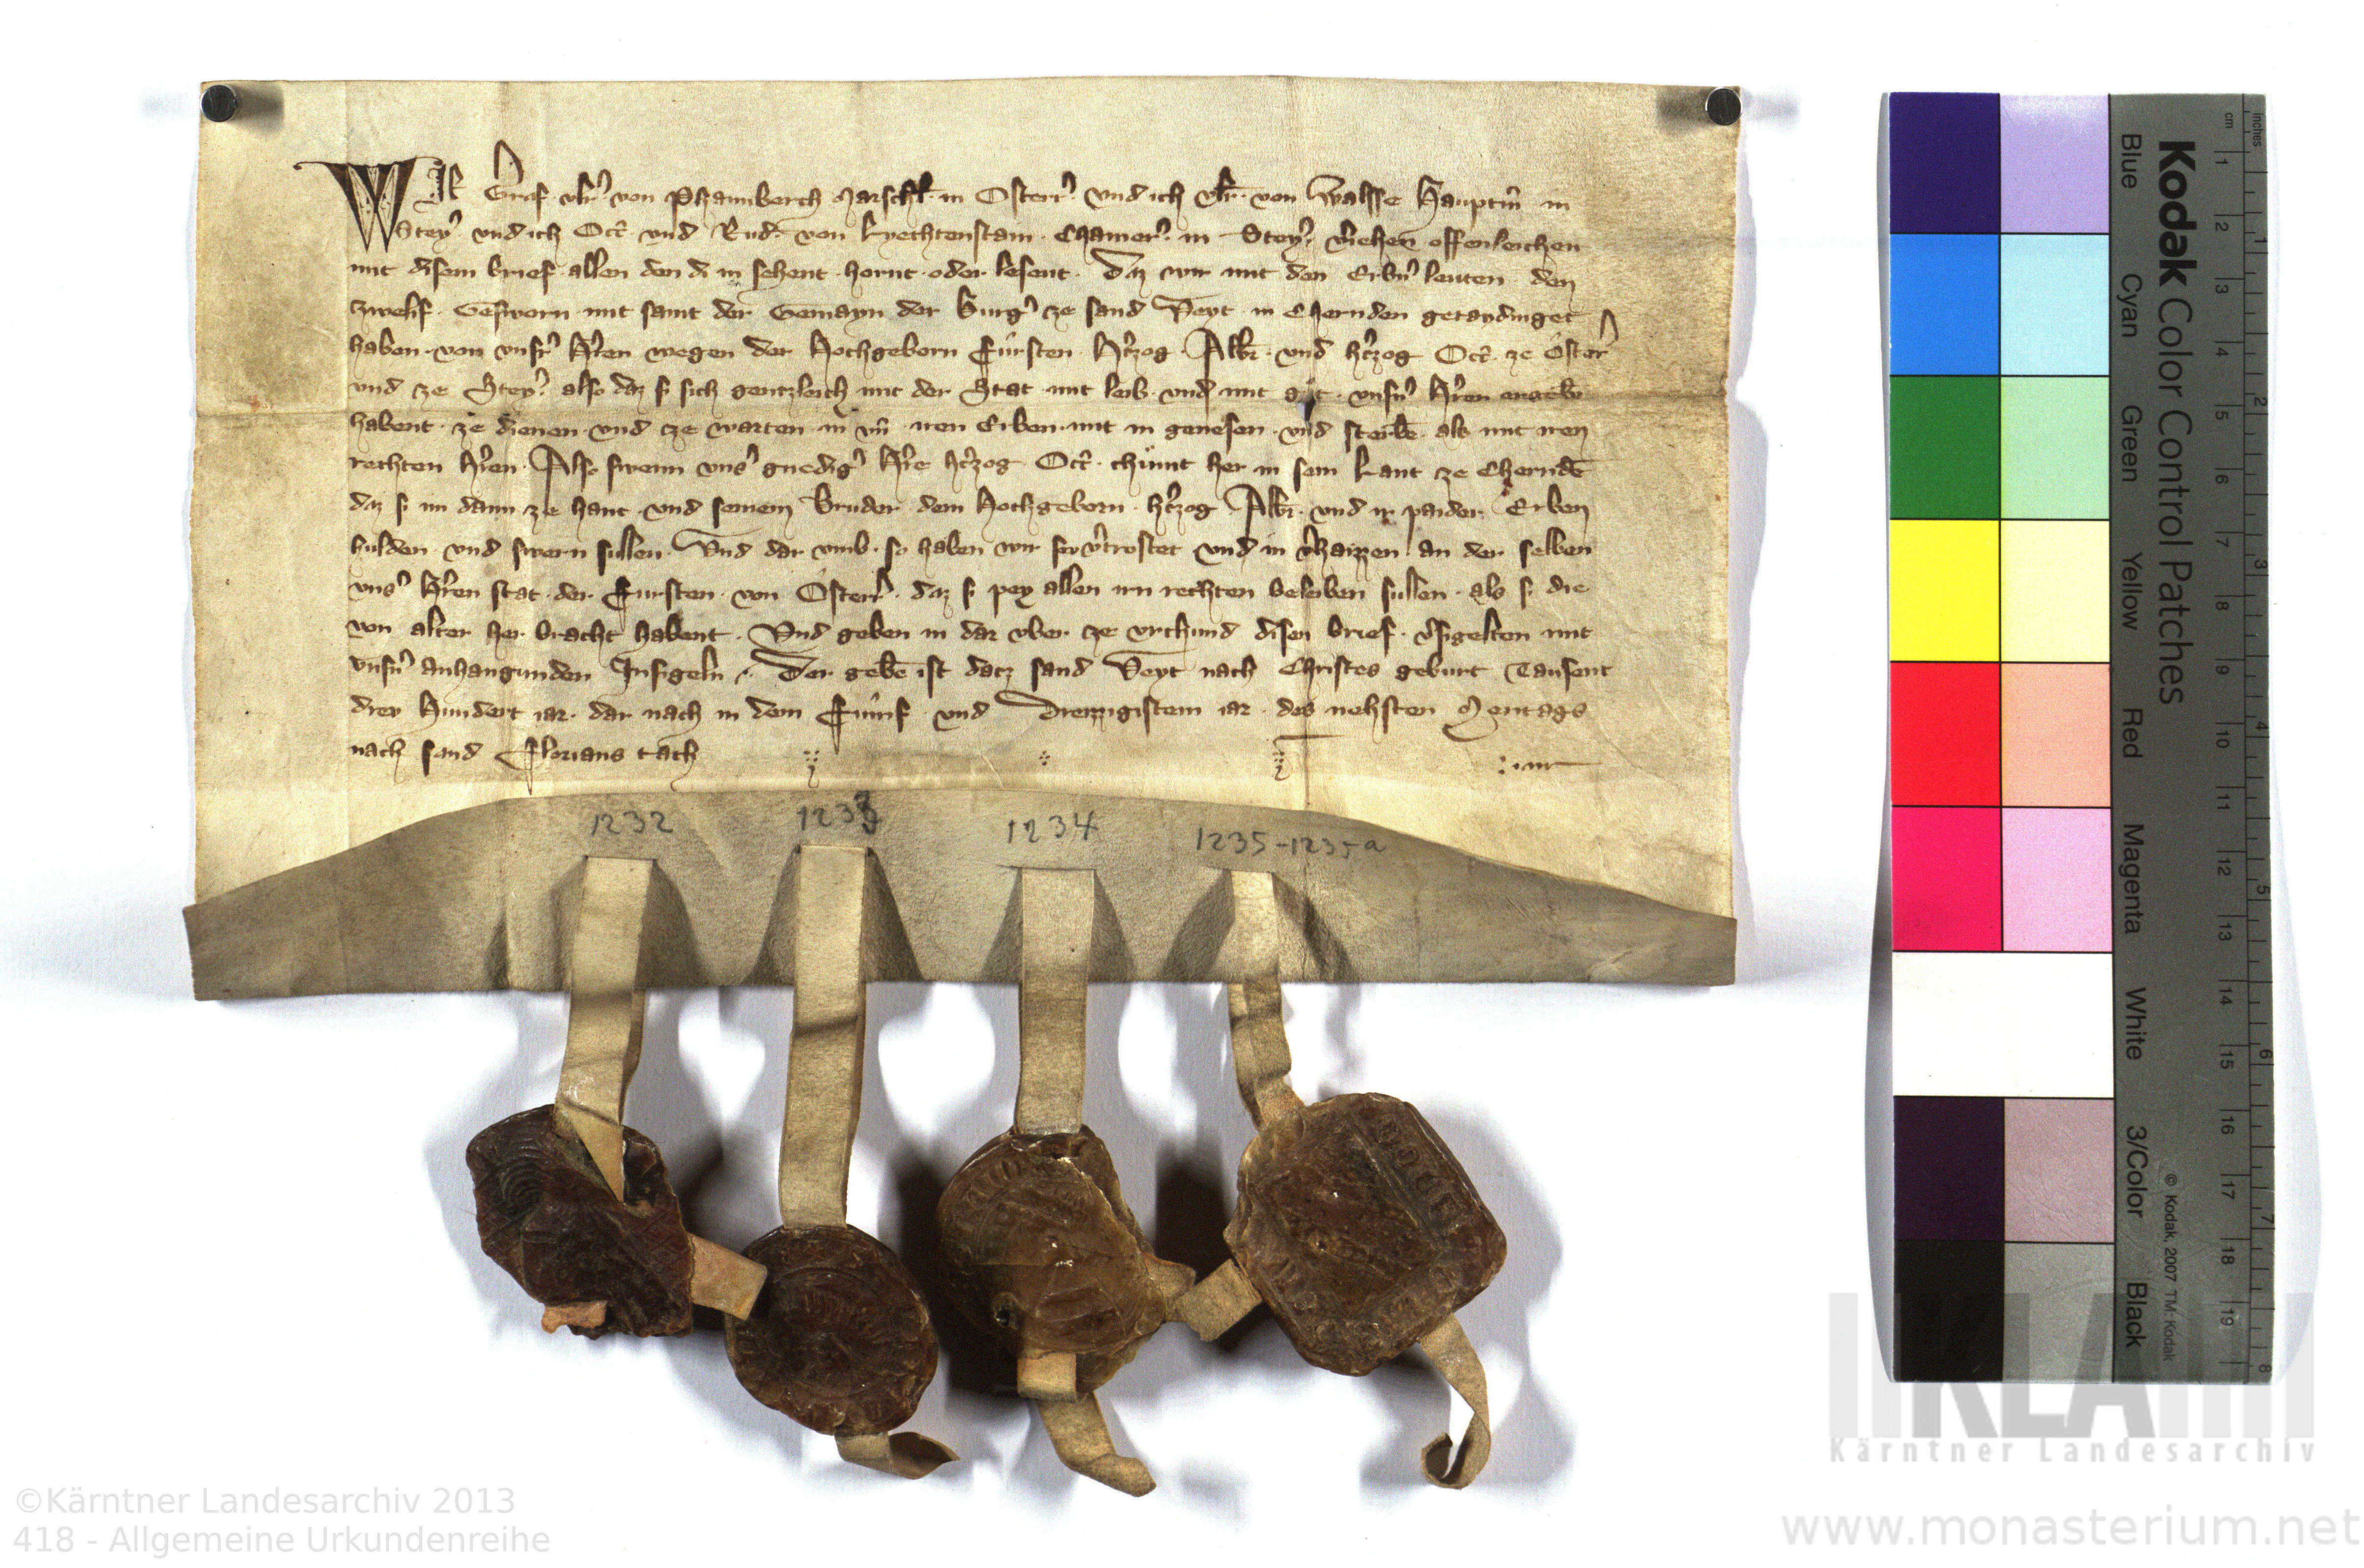 WIR Graf vlr̄ von Phannberch Marschl̄ in Osterr̄ vnd ich vlr̄ von Walsse Hauptm̄ in
Steyr̄ vnd ich Ott̄ vnd Rud̄ von Lyechtenstain Chamer̄ in Steyr̄ v̄iehen offenleichen
mit disem brief allen den di in sehent hornt oder lesent Daz wir mit den Erbn̄ leuten den
zwelif Gesworn mit samt der Gemayn der Burḡ ze sand Veyt in Chernden getaydinget
haben von vnsr̄ Hr̄en wegen der Hochgeborn Fürsten Hr̄zog Albr̄ vnd hr̄zog Ott̄ ze Öster̄
vnd ze Steyr̄ also daz si sich gentzleich mit der Stat mit leib vnd mit gůt vnsn̄ Hr̄en ergebn̄
habent ze dienen vnd ze warten in vn̄ iren Erben mit in genesen vnd sterbē als mit iren
rechten Hr̄en Also swenn vns̄ gnediḡ Hr̄re hr̄zog Ott̄ chümt her in sein Lant ze Cherndē
daz si im dann ze hant vnd seinem Bruder dem Hochgeborn hr̄zog Albr̄ vnd ir paider Erben
hulden vnd swern sullen Vnd dar vmb so haben wir siv v̄trostet vnd in v̄haizzen an der selben
vns̄ Hr̄en stat der Fursten von Österr̄ daz si pey allen irn rechten beleiben sullen als si die
von alter her bracht habent Vnd geben in dar vber ze vrchund disen brief v̄sigelten mit
vnsn̄ anhangunden Insigeln Der gebē ist datz sand Veyt nach Christes geburt Tausent
drev Hundert iar dar nach in dem Fümf vnd Dreizzigistem iar des nehsten Mentags
nach sand Florians tach
1232 1233 1234 1235-1235a
Kodak Color Control Patches
Blue Cyan Green Yellow Red Magenta White 3/Color Black
© Kodak, 2007 TM: Kodak
inches 1 2 3 4 5 6 7 8
cm 1 2 3 4 5 6 7 8 9 10 11 12 13 14 15 16 17 18 19
KLA
Kärntner Landesarchiv
©Kärntner Landesarchiv 2013
418 - Allgemeine Urkundenreihe
www.monasterium.net